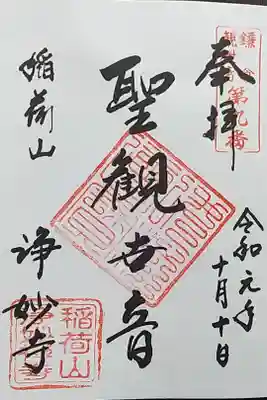 奉拝
第九番
令和元年
十月十日
聖観世音
稲荷山
浄妙寺
稲荷山